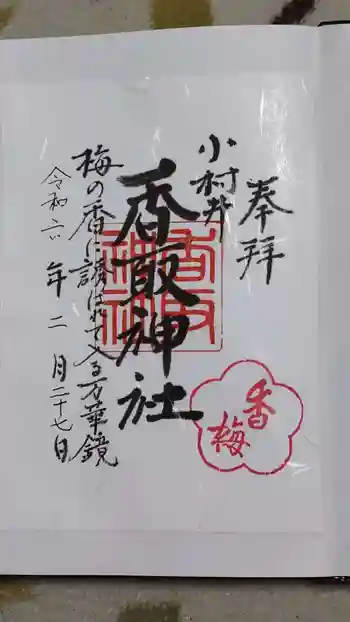 奉拝
小村井
香取神社
香取神社
香梅
梅の香に誘はれて入る万華鏡
令和六年二月二十七日